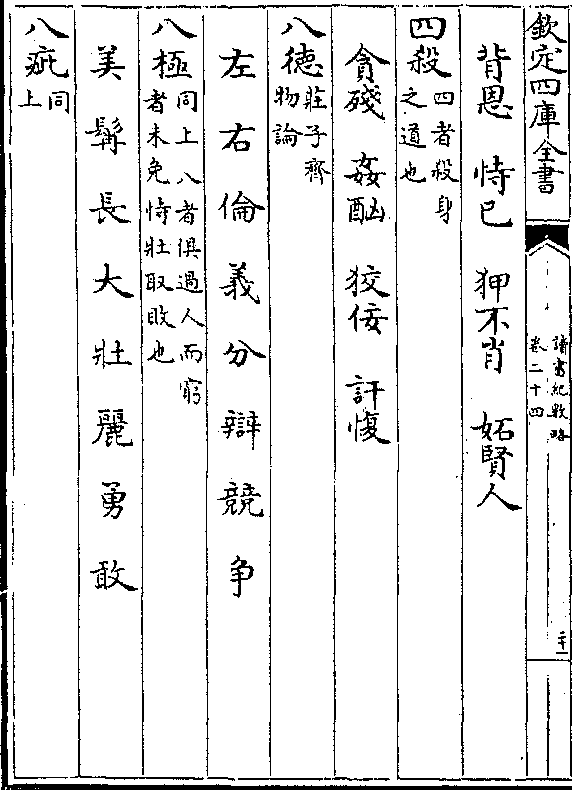 欽定四庫全書
讀書紀數略
卷二十四
二十一
背恩 恃己 狎不肖 妬賢人
四殺四者殺身
之道也
貪殘 姦酗 狡佞 訐愎
八德莊子齊
物論
左右倫義分辯競争
八極同上八者俱過人而窮
者未免恃壯取敗也
美髯長大壯麗勇敢
八疵同
上